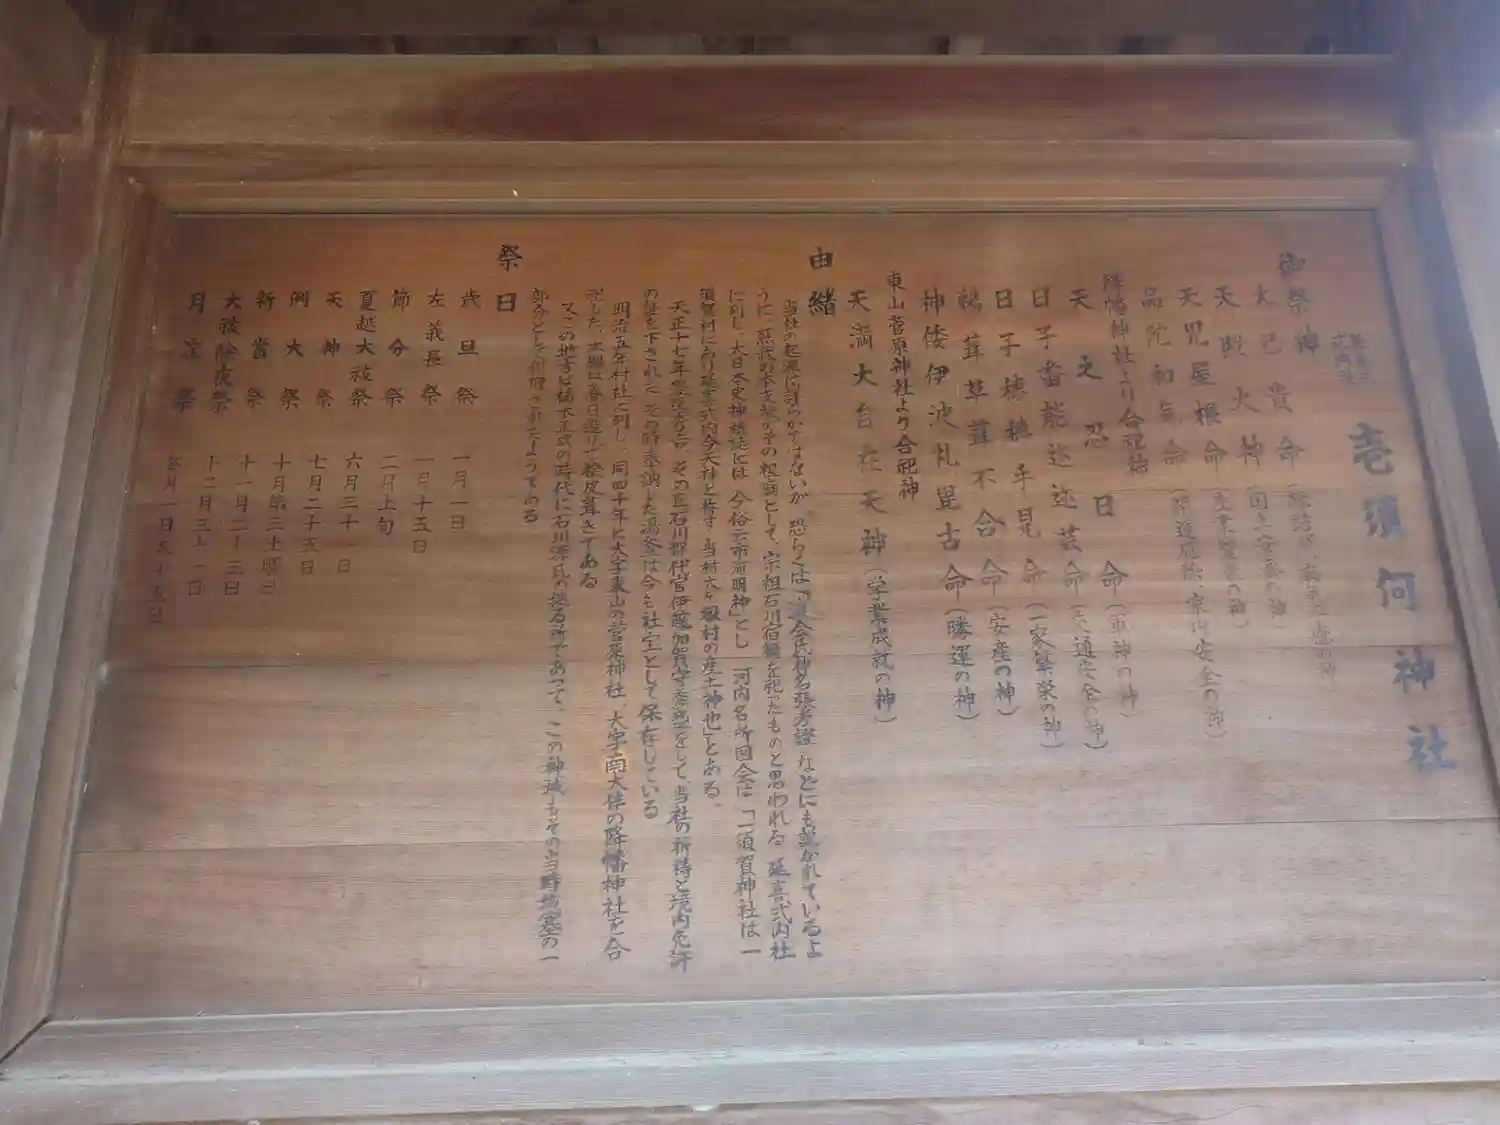 延喜式内社
壱須何神社
御祭神
大己貴命
天照大神(国土安泰の神)
天児屋根命(産業繁栄の神)
品陀和気命(開運厄除、家内安全の神)
降幡神社より合祀神
天之忍日命(軍神の神)
日子番能迩迩芸命(交通安全の神)
日子穂穂手見命(一家繁栄の神)
鵜葺草葺不合命(安産の神)
神倭伊波礼毘古命(勝運の神)
東山菅原神社より合祀神
天満大自在天神(学業成就の神)
由緒
当社の起源は明らかではないが、恐らくは「度会氏神名張考證」などにも説かれているよ
うに、蘇我の本支族がその祖廟として、宗祖石川宿禰を祀ったものと思われる 延喜式内社
に列し、大日本史神祇志には「今俗云市須賀明神」とし 河内名所図会に「一須賀神社は一
須賀村にあり延喜式内今天神と称す 当村六ヶ村の産土神也」とある。
天正十七年豊臣秀吉、その臣石川郡代官伊藤加賀守秀盛をして、当社の祈祷と境内免許
の証を下された その時奉納した湯釜は今も社宝として保存している
明治五年村社に列し、同四十年に大字東山の菅原神社、大字南大伴の降幡神社を合
祀した。本殿は春日造りで桧皮葺きである
又この地方は楠木正成の時代に石川源氏の拠る所であって、この神域もその当時城塞の一
部分として利用されたようである
祭日
歳旦祭 一月一日
左義長祭 一月十五日
節分祭 二月上旬
夏越大祓祭 六月三十一日
天神祭 七月二十五日
例大祭 十月第三土曜日
新嘗祭 十一月二十三日
大祓除夜祭 十二月三十一日
月次祭 毎月一日及十五日